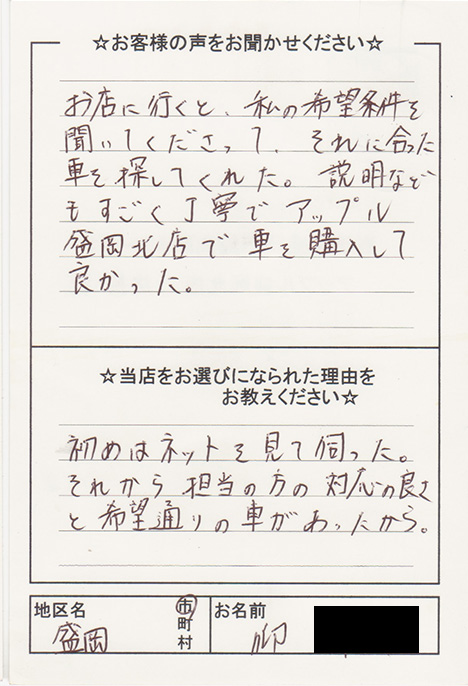 ☆お客様の声をお聞かせください☆
お店に行くと、私の希望条件を
聞いてくださって、それに合った
車を探してくれた。説明など
もすごく丁寧でアップル
盛岡北店で車を購入して
良かった。
☆当店をお選びになられた理由を
お教えください☆
初めはネットを見て伺った。
それから担当の方の対応の良さ
と希望通りの車があったから。
地区名 盛岡 市町村 お名前